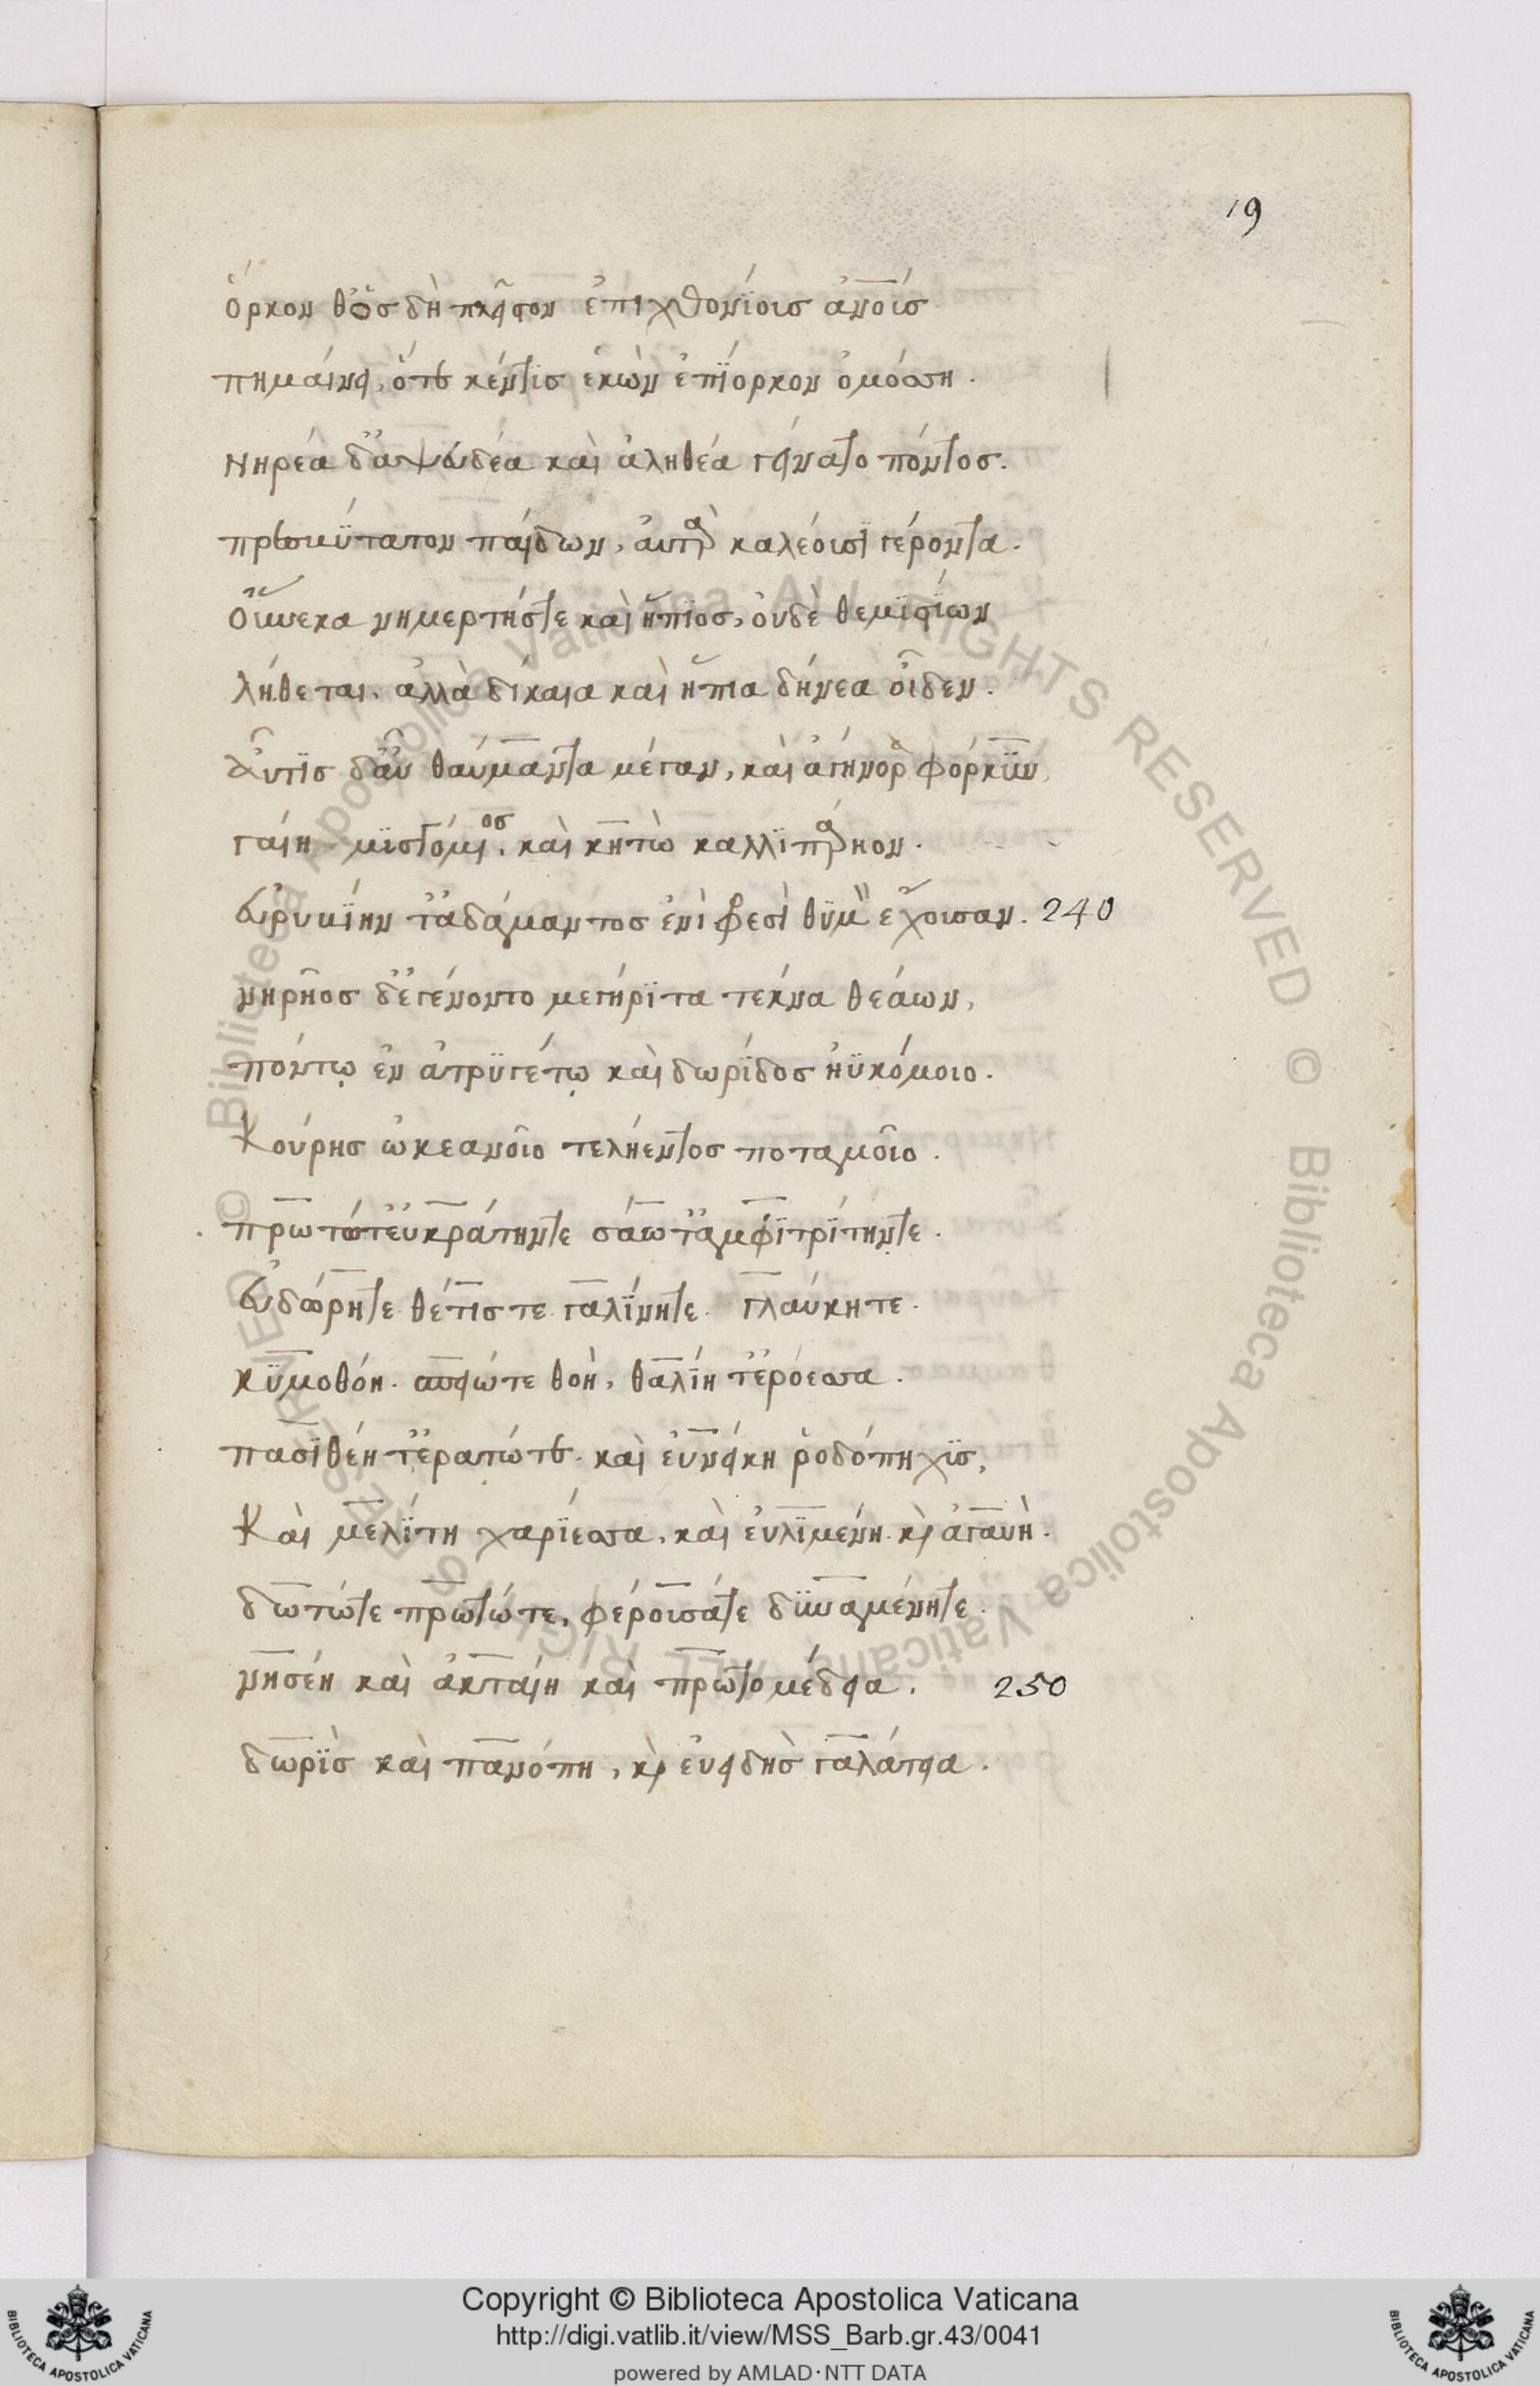 19
ὅρκον θ' ὃς δὴ πλεῖστον ἐπιχθονίοις ἀν̅οις
πημαίνει, ὅτε κέν τις ἑκὼν ἐπίορκον ὀμόσση.
Νηρέα δ' ἀψευδέα καὶ ἀληθέα γείνατο πόντος.
πρεσβύτατον παίδων, αὐτὰρ καλέουσι γέροντα.
Οὕνεκα νημερτής τε καὶ ἤπιος, οὐδὲ θεμιστίων
λήθεται. ἀλλὰ δίκαια καὶ ἤπια δήνεα οἶδεν.
Αὖτις δ' αὖ θαύμαντα μέγαν, καὶ ἀγήνορα φόρκϋν
γαίη μισγόμενος. καὶ κητὼ καλλιπάρηον.
Εὐρυβίην τ' ἀδάμαντος ἐνὶ φρεσὶ θυμὸν ἔχουσαν. 240
νηρῆος δ' ἐγένοντο μεγήριτα τέκνα θεάων,
πόντῳ ἐν ἀτρυγέτῳ καὶ δωρίδος ἠϋκόμοιο.
Κούρης ὠκεανοῖο τελήεντος ποταμοῖο.
πρωτώτ' εὐκράτηντε σάωτ' ἀμφιτρίτηντε.
Εὐδώρητε θέτιστε γαλήνητε γλαύκητε.
κϋμοθόη. σπειώτε θοὴ, θαλίη τ' ἐρόεσσα.
πασιθέη τ' ἐρατώτε. καὶ εὐνείκη ῥοδόπηχϋς,
Καὶ μελίτη χαρίεσσα, καὶ εὐλιμένη. καὶ ἀγαυὴ.
δωτώτε πρωτώτε, φέρουσάτε δϋναμένητε.
νησέη καὶ ἀκταίη καὶ πρωτομέδεια. 250
δωρὶς καὶ πανόπη, καὶ εὐειδὴς γαλάτεια.
Copyright © Biblioteca Apostolica Vaticana
http://digi.vatlib.it/view/MSS_Barb.gr.43/0041
powered by AMLAD·NTT DATA